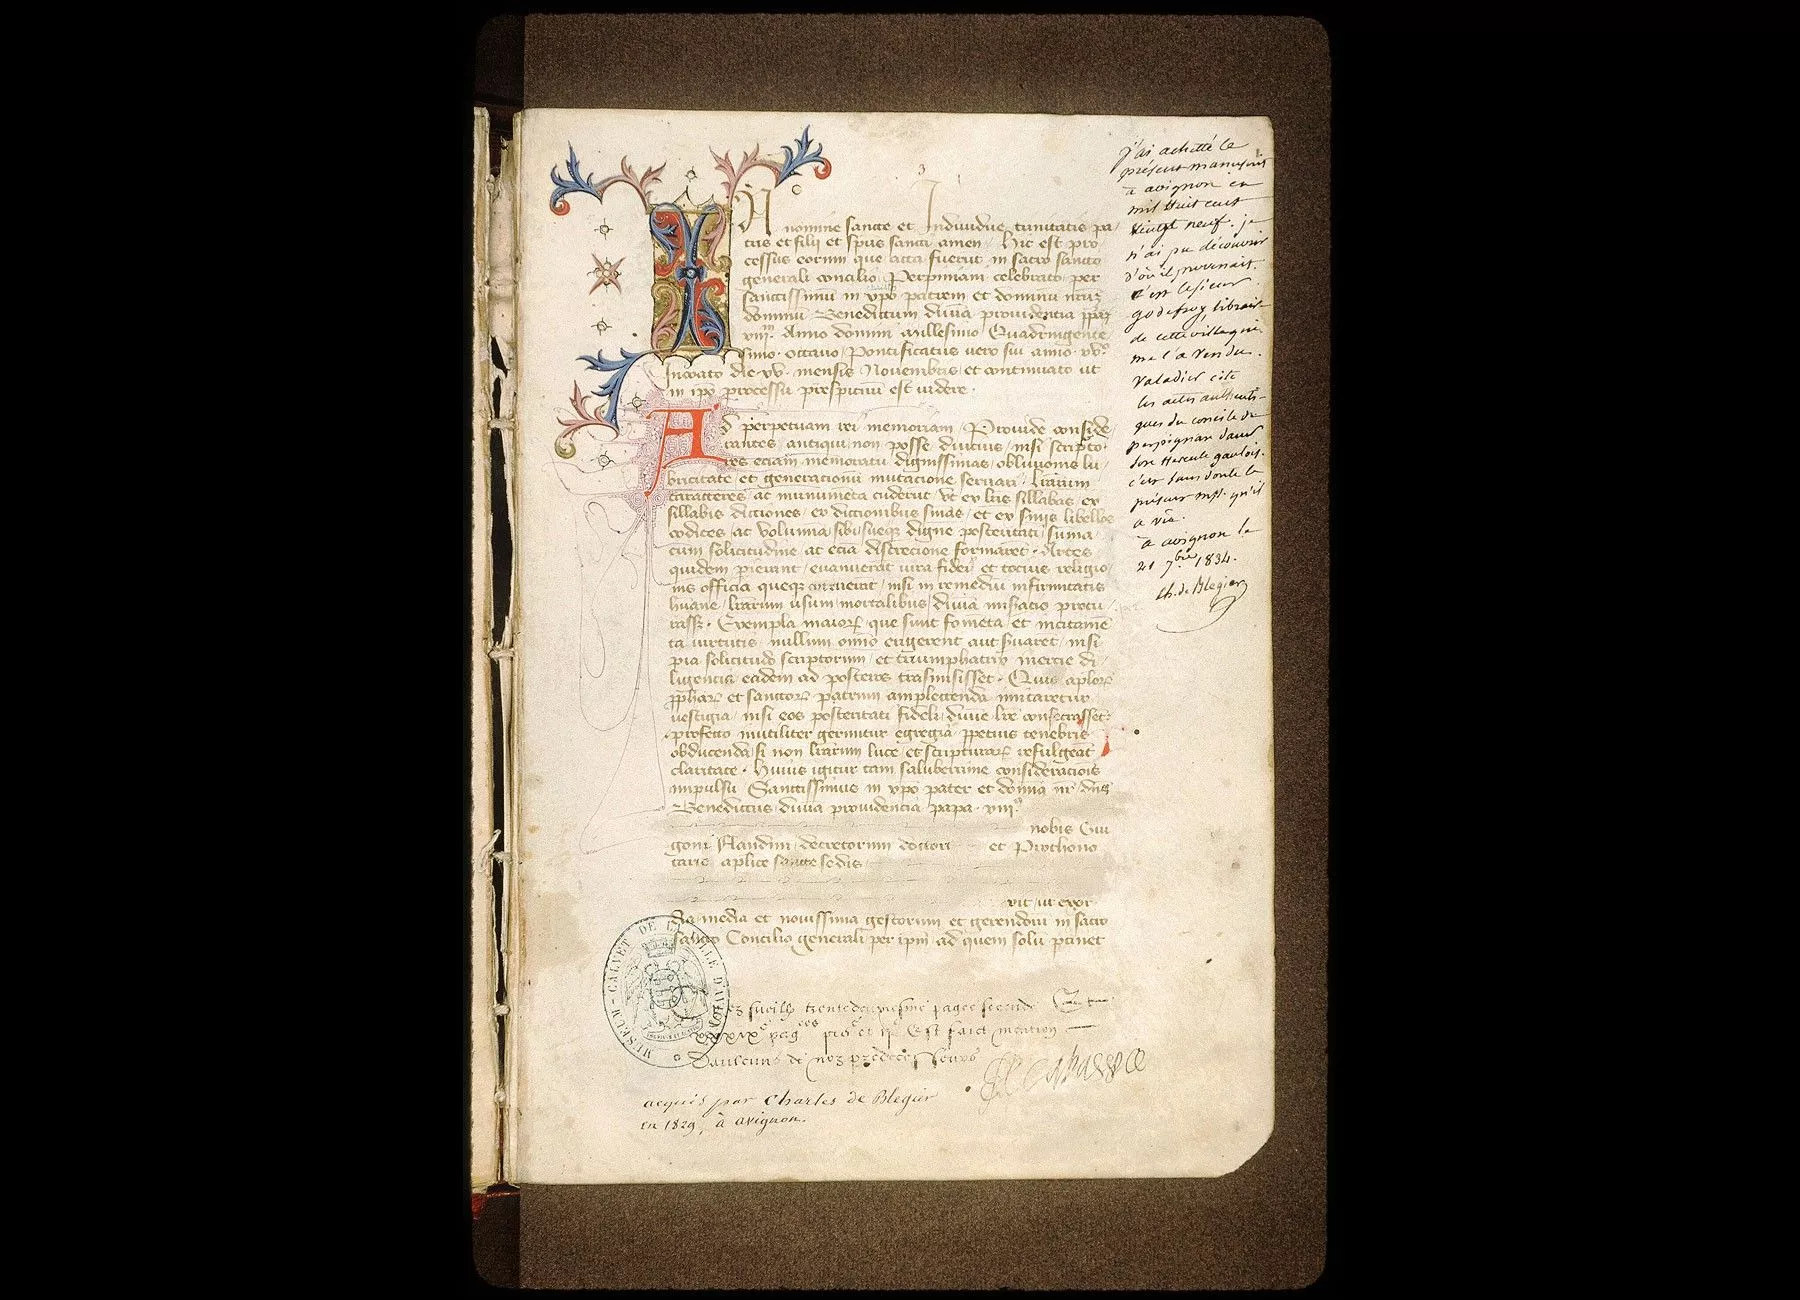 In nomine sancte et Individue trinitatis pa
tris et filii et spus sancti amen / Hic est pro
cessus eorum que acta fuerut in sacro sancto
generali concilio Perpiniani celebrato per
sanctissimu in xpo patrem et dominu nrm
dominu Benedictum diuia prouidentia ppa
xiii Anno domini Millesimo Quadringente
simo octauo Pontificatus vero sui anno xv
Incoato die xv mensis Nouembris et continuato ut
in ipo processu prospicuu est videre
Ad perpetuam rei memoriam Prouide conside
rantes antiqui non posse diucius nisi scripto
res eciam memoratu dignissimas obliuionis lu
bricitate et generacionu mutacione seruari lrarum
caracteres ac munumeta cuderut Vt ex lris sillabas ex
sillabis dictiones ex dictionibus sinas et ex sinis libellos
codices ac Volumia sibi sueqz digne posteritati suma
cum solicitudine ac ecia discrecione formaret Artes
quidem perierant euanuerat iura fidei et tocius religio
nis officia queqz corruerat nisi in remediu infirmitatis
huane lrarum usum mortalibus diuia miseratio procu
rasset Exempla maior que sunt fometa et incitame
ta virtutis nullum omio erigerent aut iuuaret nisi
pia solicitudo scriptorum et triumphatrix inercie di
ligencia eadem ad posteros trasmisisset Quis aplor
pphar et sanctor patrum amplectenda imitaretur
vestigia nisi eos posteritati fideli diuine lre consecrasset
profecto inutiliter gerimtur egregia ppetuis tenebris
obducenda si non lrarum luce et scripturar refulgeat
claritate Huius igitur tam saluberrime consideracois
impulsu Sanctissimus in xpo pater et dominus nr dns
Benedictus diuia prouidencia papa xiii
nobis Gui
goni Flandini decretorum doctori et Prothono
tario aplice sancte sedis
vit ut exor
dia media et nouissima gestorum et gerendoru in sacro
sancto Concilio generali per ipm ad quem solu ptinet
MUSEUM-CALVET DE LA VILLE D'AVIGNON
fueilh trentedeuxiesme pagee seconde
Est faict mention
Daulcuns de noz predecesseurs
acquis par Charles de Blegier
en 1829, à avignon.
j'ai achetté le
présent manuscrit
à avignon en
mil huit cent
vingt neuf. je
n'ai pu découvrir
d'où il provenait.
c'est le sieur
godefroy, librair
de cette ville qui
me l'a vendu.
Valadier cite
les actes authenti-
ques du concile de
perpignan dans
son Hercule gaulois.
c'est sans doute le
présent mst. qu'il
a vu.
à avignon le
21 7bre 1834.
Ch. de Blegier